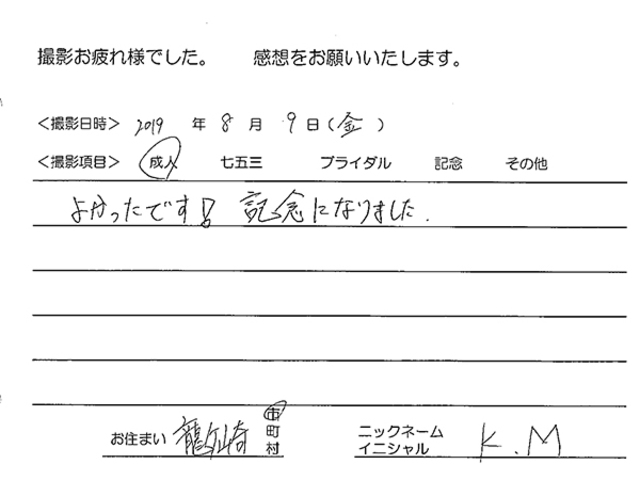 撮影お疲れ様でした。 感想をお願いいたします。
<撮影日時> 2019 年 8 月 9 日(金)
<撮影項目> 成人 七五三 ブライダル 記念 その他
よかったです! 記念になりました.
お住まい 龍ケ崎 市 町 村 ニックネーム イニシャル K.M